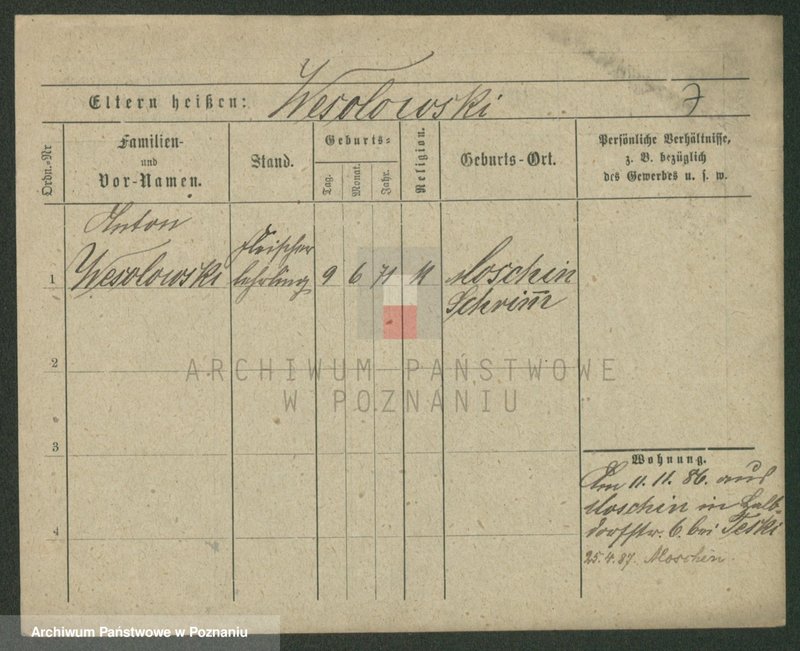 Eltern heißen: Wesolowski 7
Ordn.-Nr
Familien-
und
Vor-Namen.
Stand.
Geburts-
Tag.
Monat.
Jahr.
Religion.
Geburts-Ort.
Persönliche Verhältnisse,
z. B. bezüglich
des Gewerbes u. s. w.
Anton
1 Wesolowski
Fleischer
lehrling
9 6 71
Moschin
Schrim̅
2
3
4
ARCHIWUM PAŃSTWOWE
W POZNANIU
Wohnung.
Am 11. 11. 86. aus
Moschin in Halb-
dorfstr. 6. bei Teski
25.4.87. Moschin
Archiwum Państwowe w Poznaniu